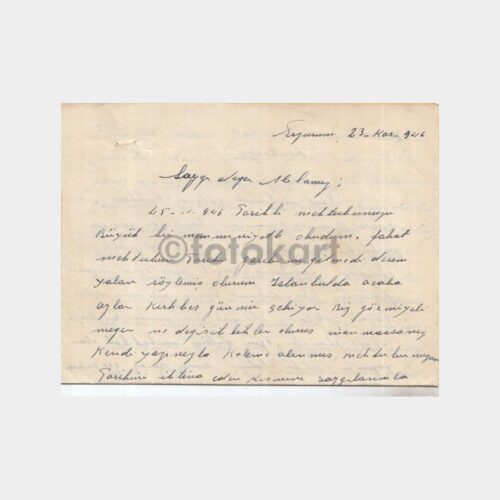 Erzurum 23-Kas-946
Saygı değer Ablamız;
45-11-946 Tarihli mektubunuzu
Büyük bir memnuniyetle okudum, fakat
©fotokart
mektubun Tarihi garibime gitmedi dersem
yalan söylemiş olurum İstanbulda acaba
aylar kırkbeş gün mü çekiyor Biz görmiyeli
meğer ne değişiklikler olmuş inanmassanız
Kendi yazınızla kaleme alınmış mektubunuzun
Tarihini ihtiva eden kısmını saygılarımla